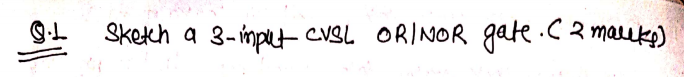 Q.1 Sketch a 3-input CVSL OR/NOR gate. (2 marks)